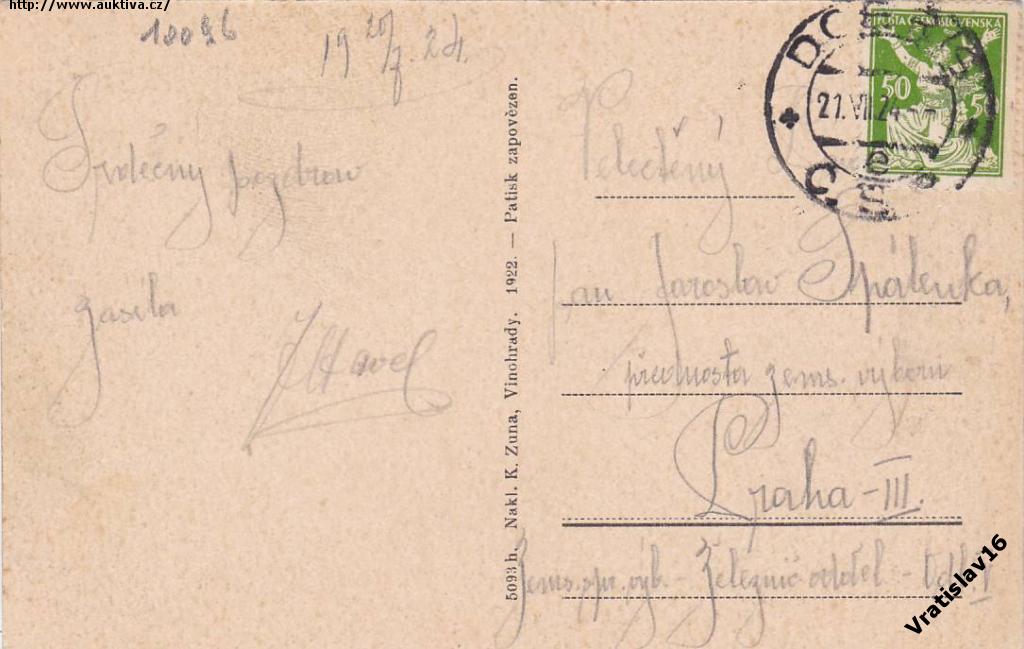 http://www.auktiva.cz/
18096
19 20/7. 24.
Srdečný pozdrav
zasílá
JHavel
5093 h. Nakl. K. Zuna, Vinohrady. 1922. — Patisk zapovězen.
POŠTA ČESKOSLOVENSKÁ
50 50
21.VII.24
Č S
Velectěný
pan Jaroslav Spálenka,
přednosta zems. výboru
Praha - III.
Zems. spr. výb. - Železnič. odděl. -
Vratislav16